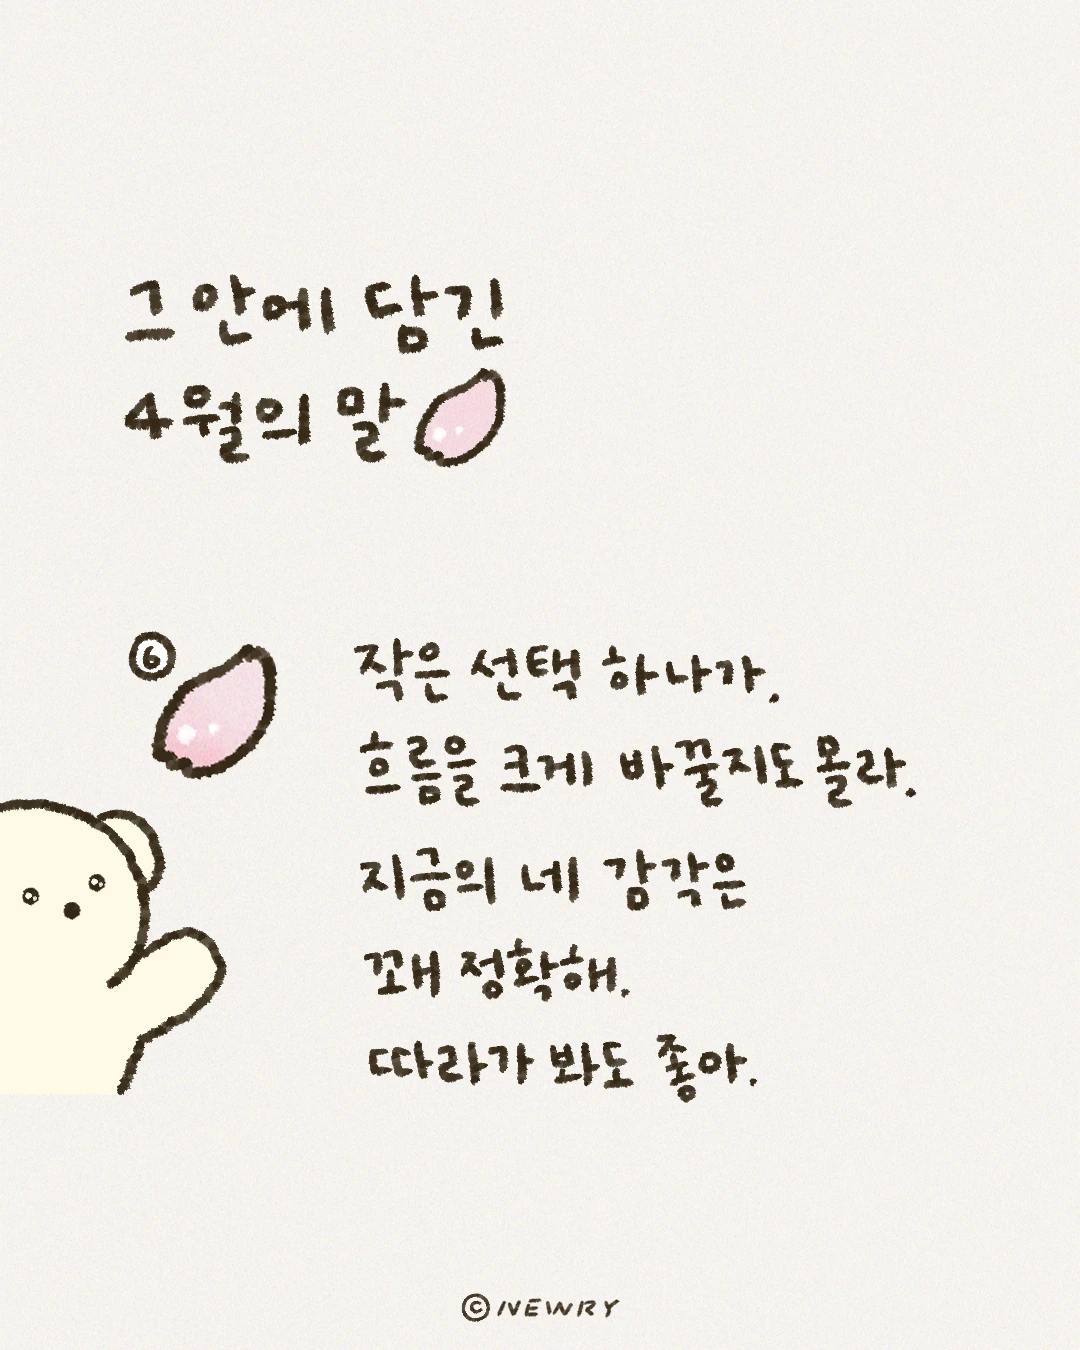 그 안에 담긴
4월의 말
⑥
작은 선택 하나가.
흐름을 크게 바꿀지도 몰라.
지금의 네 감각은
꽤 정확해.
따라가 봐도 좋아.
© NEWRY